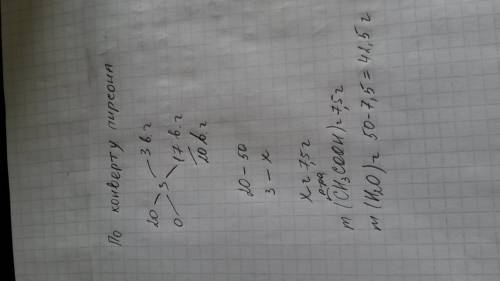 По конверту пирсона
20 3 в. г
3
0 17 в. г
20 в. г
20 - 50
3 - x
x = 7,5 г
m р-ра (CH3COOH) = 7,5 г
m (H2O) = 50 - 7,5 = 42,5 г